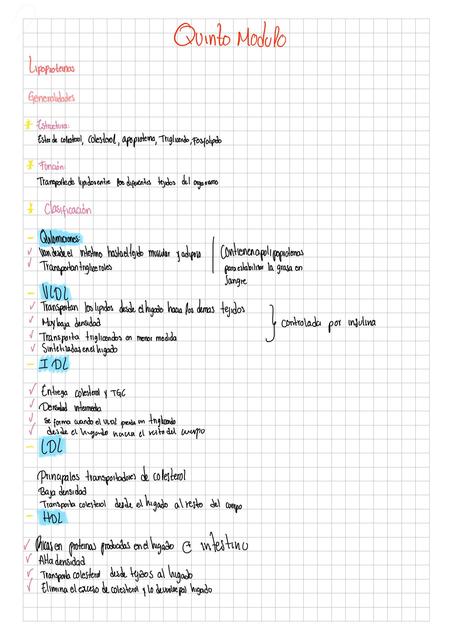 Quinto Modulo
Lipoproteinas
Generalidades
Estructura:
Ester de colesterol, colesterol, apoproteina, Triglicerido, Fosfolipido
Función:
Transporte de lipidos entre los diferentes tejidos del organismo
Clasificación
- Quilomicrones
✓ Van desde el intestino hasta el tejido muscular y adiposo
✓ Transportan trigliceroles
Contienen apolipoproteinas
para estabilizar la grasa en
sangre
- VLDL
✓ Transportan los lipidos desde el higado hacia los demas tejidos
✓ Muy baja densidad
✓ Transporta trigliceridos en menor medida
✓ Sintetizadas en el higado
controlada por insulina
- IDL
✓ Entrega colesterol y TGC
✓ Densidad intermedia
✓ se forma cuando el VLDL pierde un triglicerido
✓ desde el higado hacia el resto del cuerpo
- LDL
Principales transportadores de colesterol
Baja densidad
Transporta colesterol desde el higado al resto del cuerpo
- HDL
✓ Ricas en proteinas producidas en el higado e intestino
✓ Alta densidad
✓ Transporta colesterol desde tejidos al higado
✓ Elimina el exceso de colesterol y lo devuelve al higado